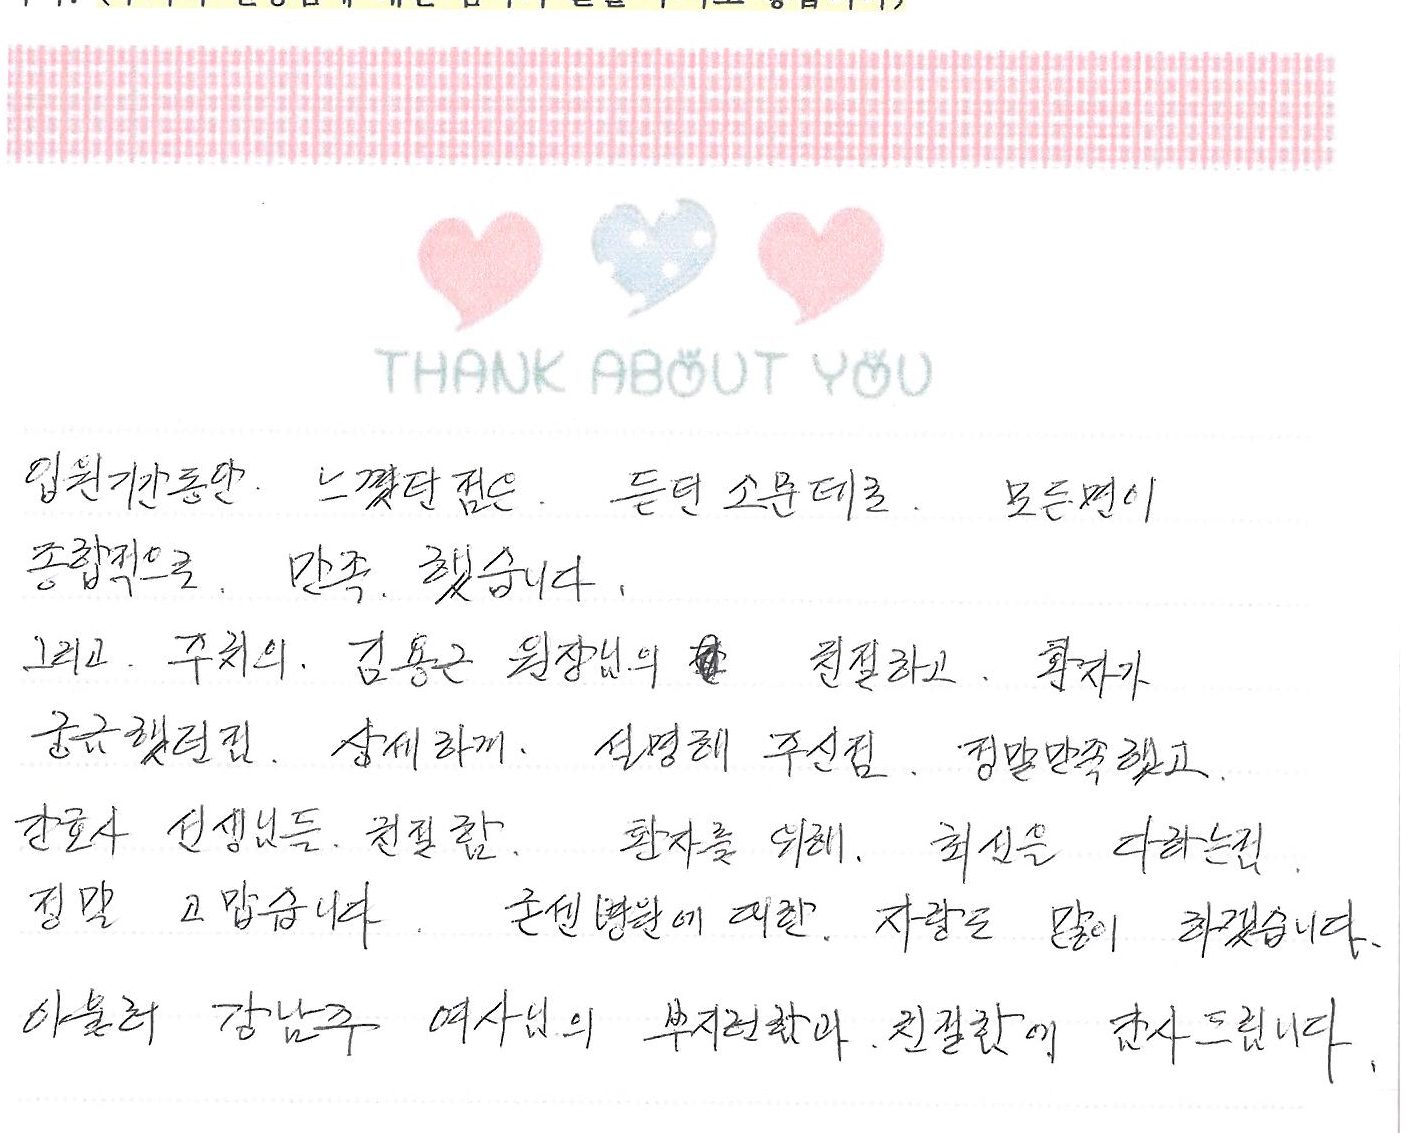 THANK ABOUT YOU
입원기간동안. 느꼈단점은. 듣던 소문데로. 모든면이
종합적으로. 만족. 했습니다.
그리고. 주치의. 김용근 원장님의 친절하고. 환자가
궁금했던점. 상세하게. 설명해 주신점. 정말만족했고.
간호사 선생님들. 친절함. 환자를 위해. 최선을 다하는점.
정말 고맙습니다. 굳센병원에 대한. 자랑도 많이 하겠습니다.
아울러 강남주 여사님의 부지런함과. 친절함에 감사드립니다.